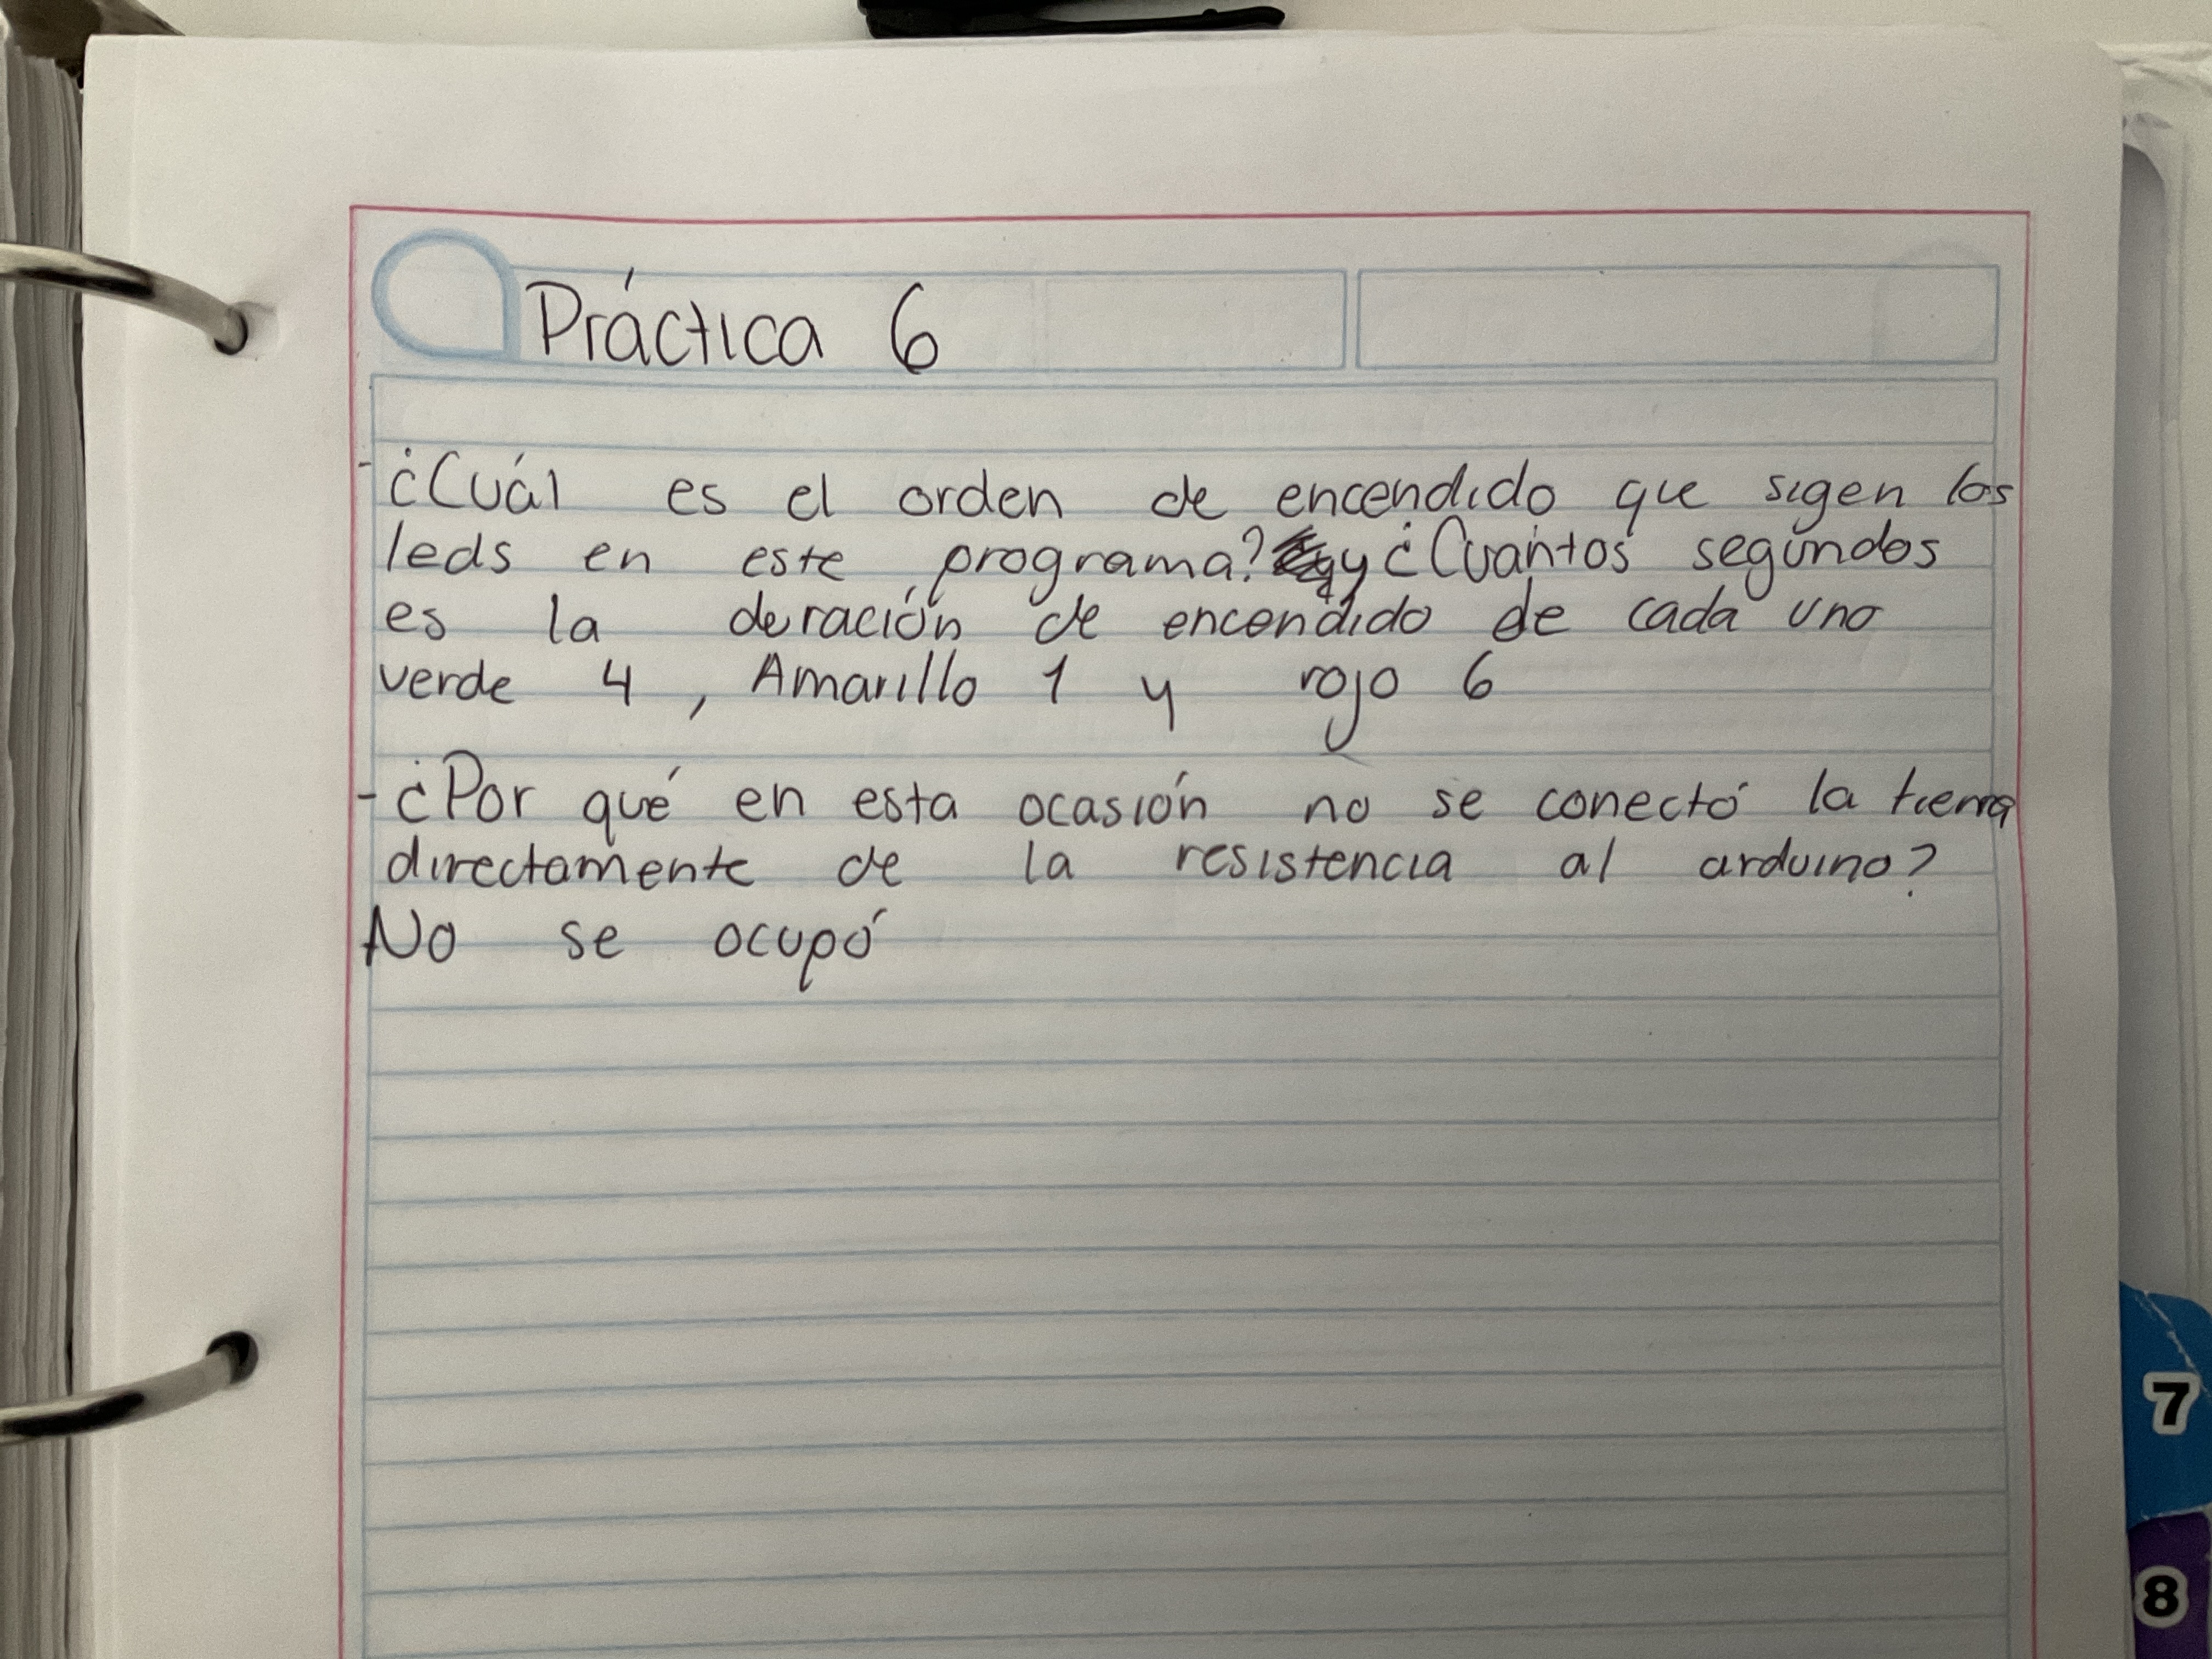 Práctica 6
-¿Cuál es el orden de encendido que sigen los
leds en este programa? y ¿Cuantos segundos
es la deración de encendido de cada uno
verde 4, Amarillo 1 y rojo 6
-¿Por qué en esta ocasión no se conectó la tierra
directamente de la resistencia al arduino?
No se ocupó
7
8